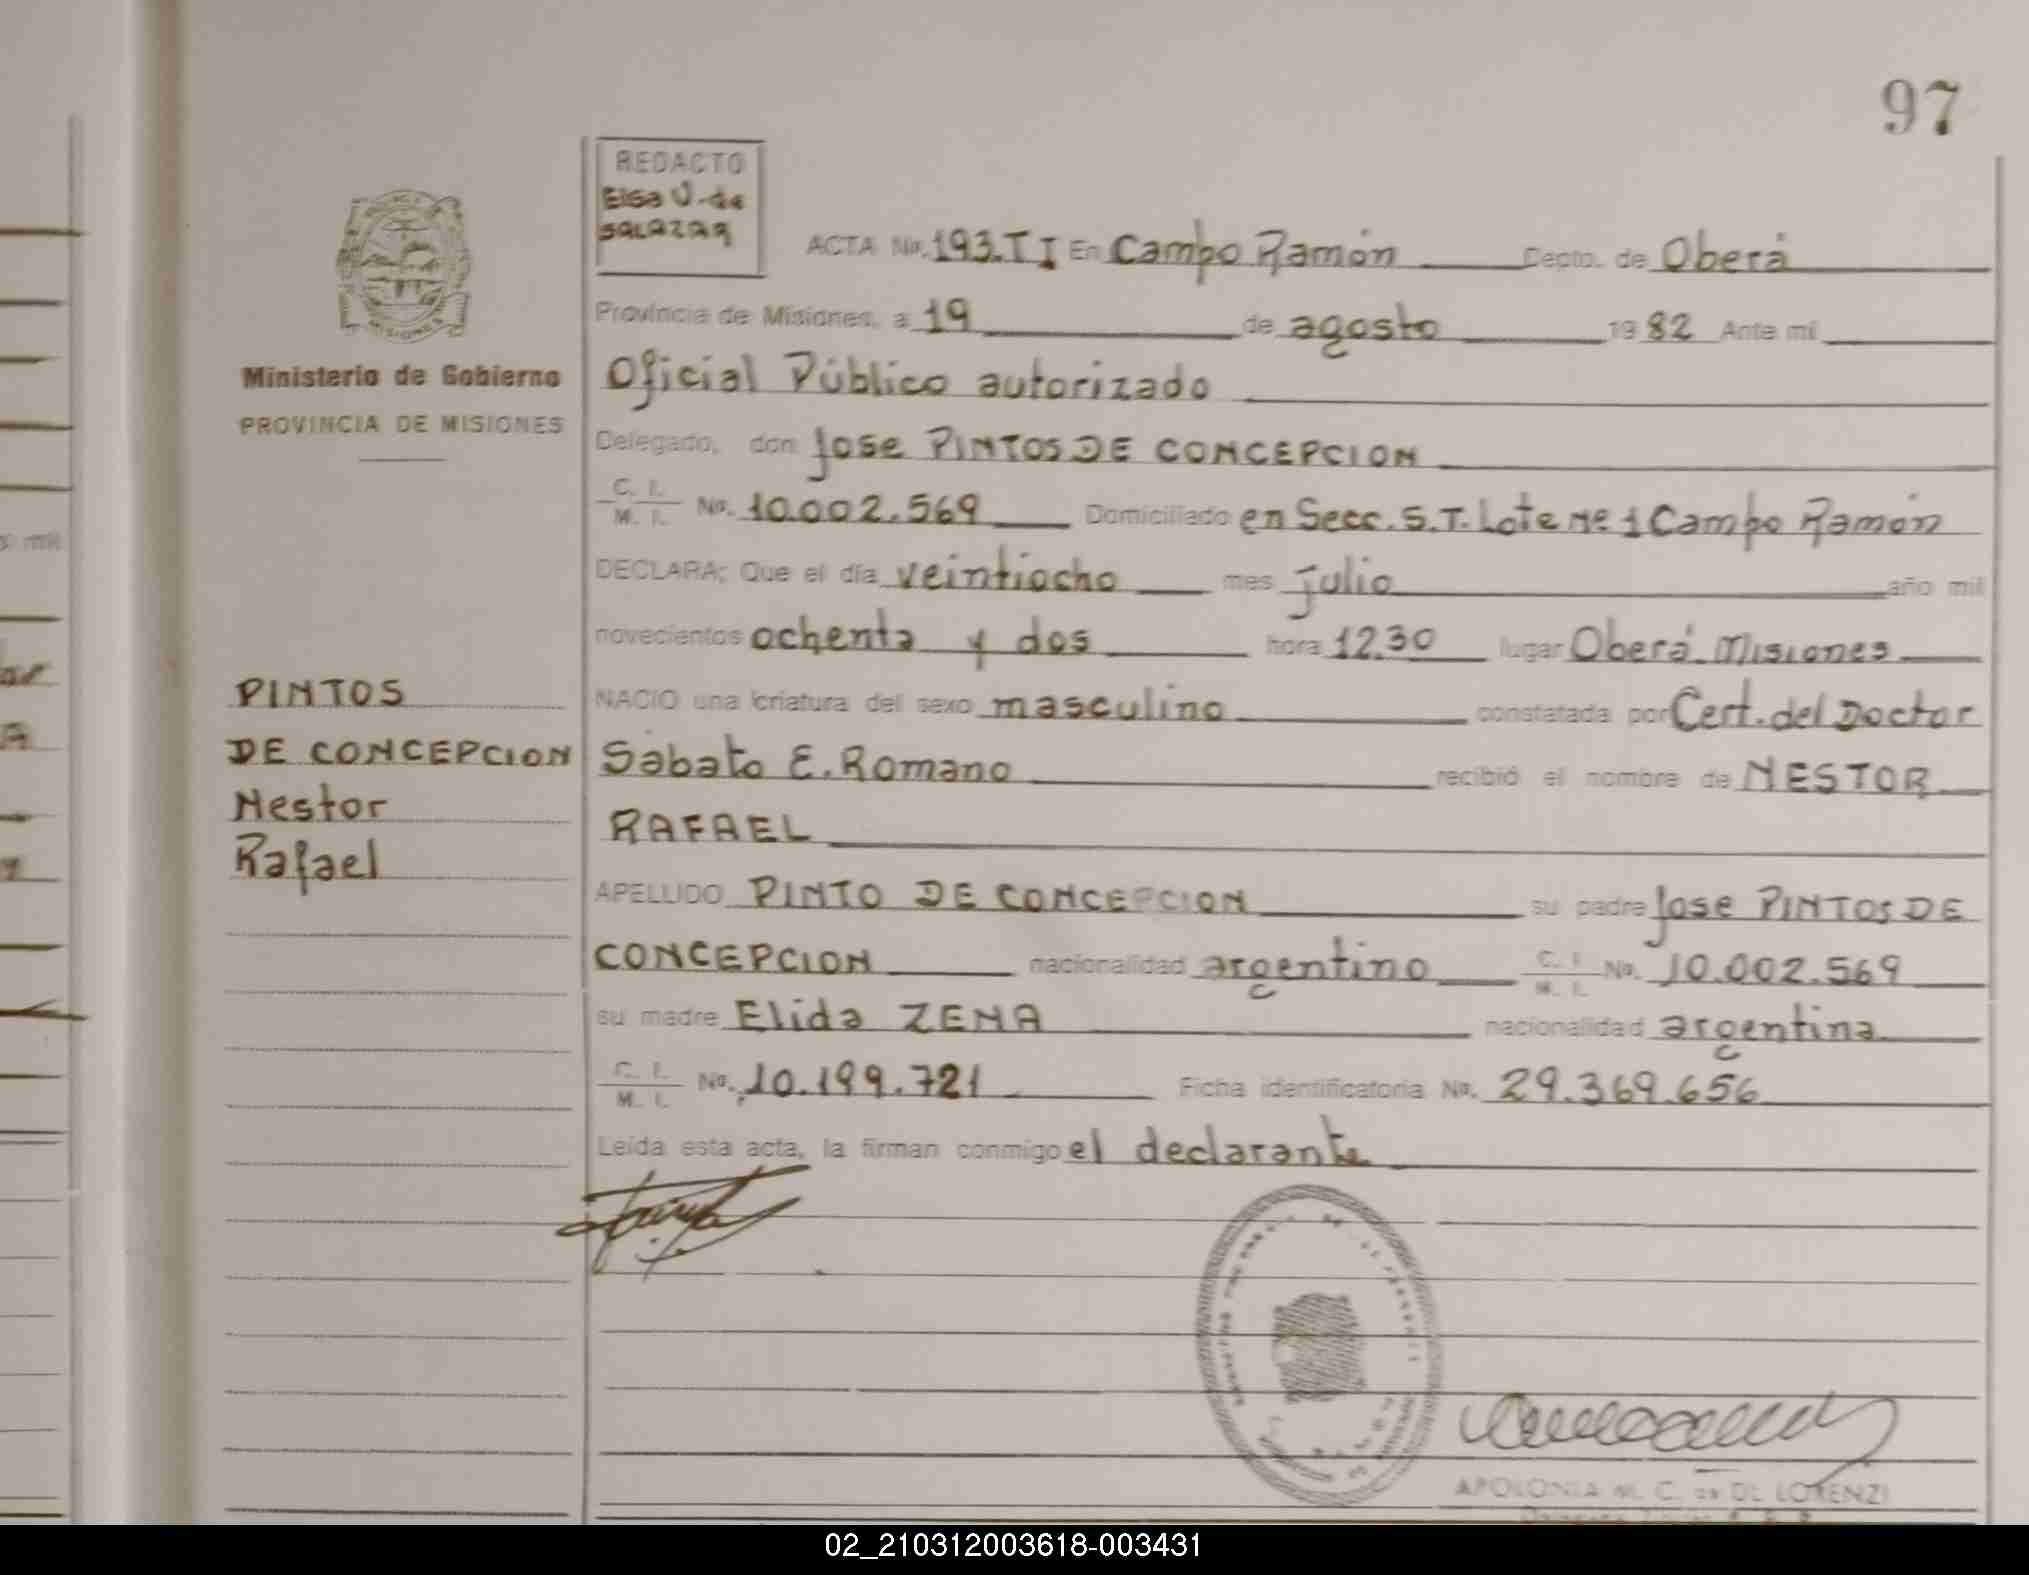 97
REDACTO
Elsa V. de
SALAZAR
ACTA No. 193.TI En Campo Ramón Depto. de Oberá
Provincia de Misiones, a 19 de agosto 1982 Ante mí
Oficial Público autorizado
Delegado, don Jose PINTOS DE CONCEPCION
C. I. M. I. No. 10.002.569 Domiciliado en Secc. S.T. Lote Nº 1 Campo Ramón
DECLARA; Que el día veintiocho mes julio año mil
novecientos ochenta y dos hora 12.30 lugar Oberá Misiones
NACIO una criatura del sexo masculino constatada por Cert. del Doctor
Sabato E. Romano recibió el nombre de NESTOR
RAFAEL
APELLIDO PINTO DE CONCEPCION su padre Jose PINTOS DE
CONCEPCION nacionalidad argentino C. I. M. I. No. 10.002.569
su madre Elida ZENA nacionalidad argentina
C. I. M. I. No. 10.199.721 Ficha identificatoria No. 29.369.656
Leída esta acta, la firman conmigo el declarante
MISIONES
Ministerio de Gobierno
PROVINCIA DE MISIONES
PINTOS
DE CONCEPCION
Nestor
Rafael
s mil
APOLONIA M. C. de DE LORENZI
02_210312003618-003431